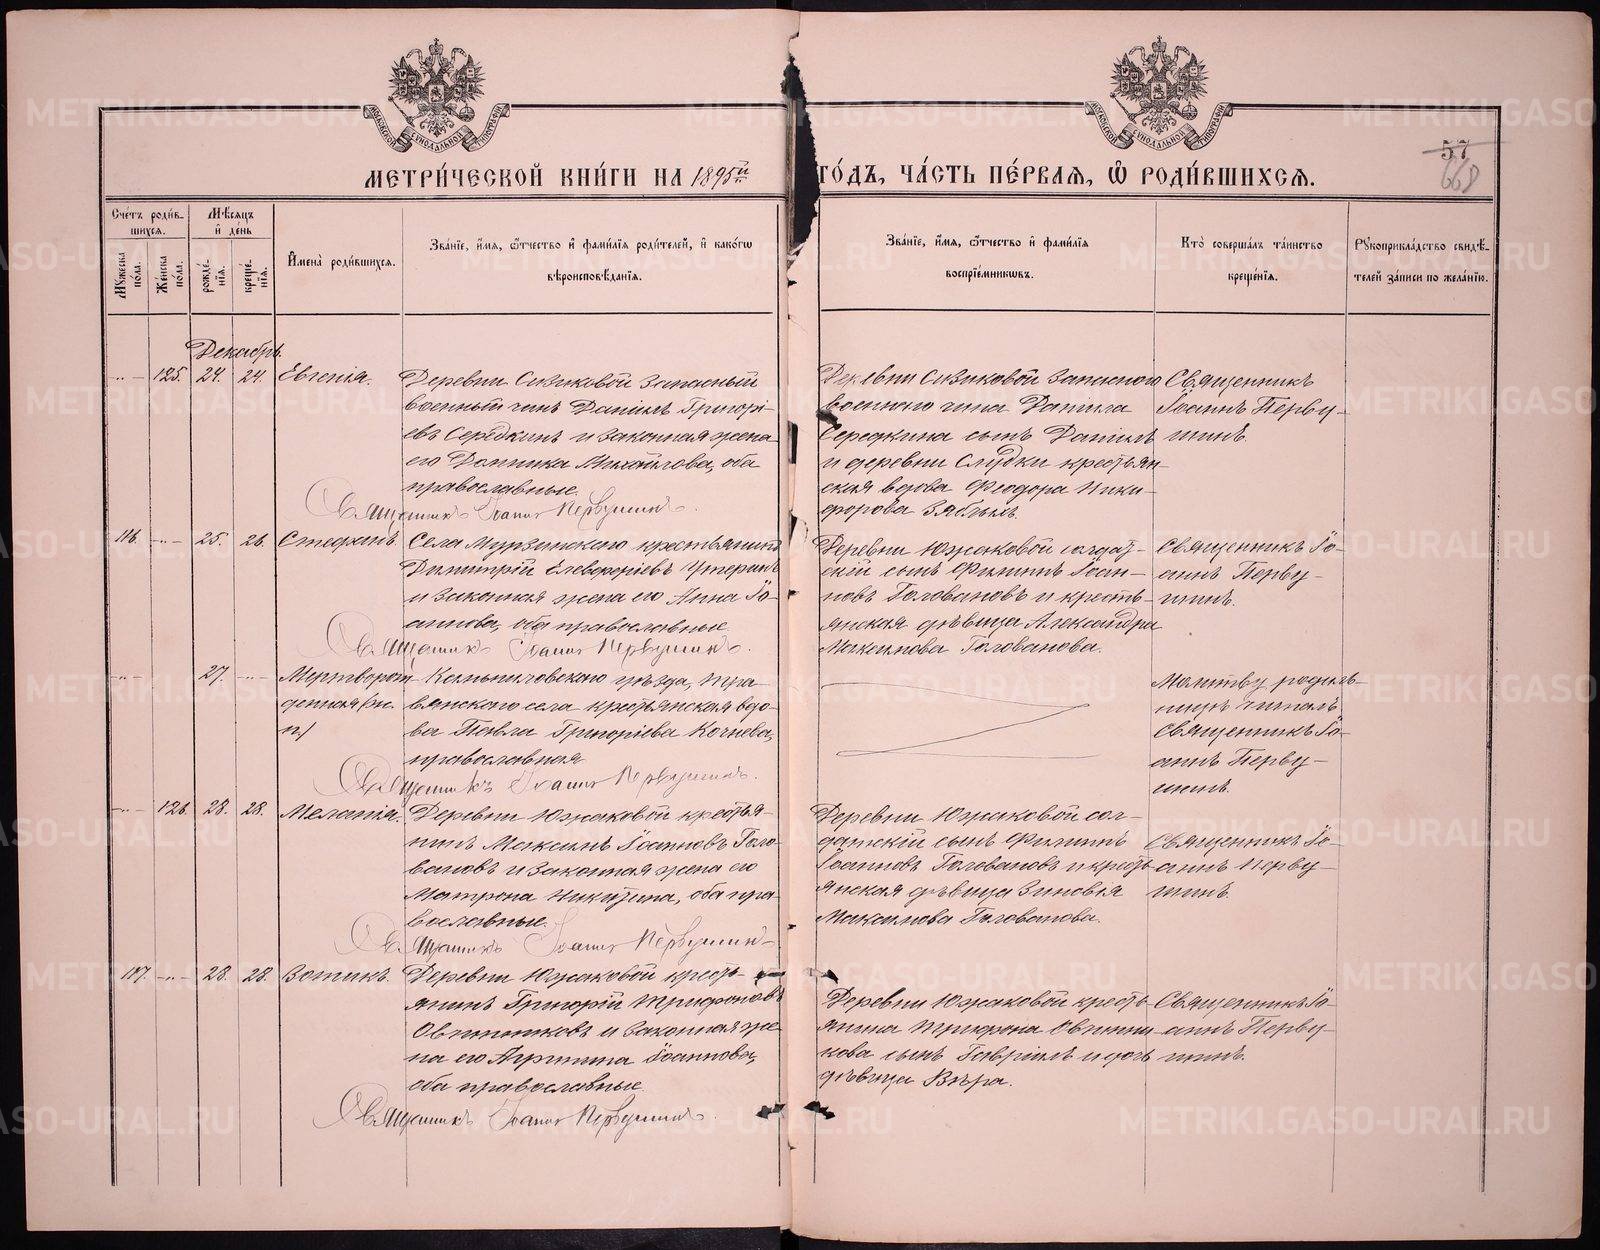 МОСКОВСКОЙ СИНОДАЛЬНОЙ ТИПОГРАФІИ
МОСКОВСКОЙ СИНОДАЛЬНОЙ ТИПОГРАФІИ
57
668
МЕТРИ́ЧЕСКОЙ КНИ́ГИ НА 1895й ГО́ДЪ, ЧА́СТЬ ПЕ́РВАЯ, Ѡ РОДИ́ВШИХСЯ.
Сче́тъ роди́в-
шихся.
Мѣ́сяцъ
и҆ де́нь
Мꙋ́жеска
по́ла.
Же́нска
по́ла.
рожде́-
нїѧ.
креще́-
нїѧ.
И҆мена̀ роди́вшихся.
Зва́нїе, и҆́мѧ, ѻ҆́тчество и҆ фами́лїѧ роди́телей, и҆ како́гѡ
вѣроисповѣ́данїѧ.
Зва́нїе, и҆́мѧ, ѻ҆́тчество и҆ фами́лїѧ
воспрїе́мникѡвъ.
Кто̀ соверша́лъ та́инство
креще́нїѧ.
Рꙋкоприкла́дство свидѣ́-
телей за́писи по жела́нїю.
Декабрь.
-"- 125. 24. 24. Евгенія.
Деревни Сизиковой запасный
военный чинъ Даніилъ Григорі-
евъ Середкинъ и законная жена
его Домника Михайлова, оба
православные.
Священникъ Іоаннъ Первушинъ.
Деревни Сизиковой запаснаго
военнаго чина Даніила
Середкина сынъ Даніилъ
и деревни Слудки крестьян-
ская вдова Феодора Ники-
форова Зяблыхъ.
Священникъ
Іоаннъ Перву-
шинъ.
116. -"- 25. 26. Стефанъ.
Села Мурзинскаго крестьянинъ
Димитрій Елевферіевъ
и законная жена его Анна Іо-
аннова, оба православные
Священникъ Іоаннъ Первушинъ.
Деревни Южаковой солдат-
скій сынъ Филиппъ Іоан-
новъ Головановъ и кресть-
янская дѣвица Александра
Максимова Голованова.
Священникъ Іо-
аннъ Перву-
шинъ.
-"- 27. -"- Мертворож-
денная (ж.
п.)
Камышловскаго уѣзда, Тра-
вянскаго села крестьянская вдо-
ва Павла Григоріева Кочнева,
православная
Священникъ Іоаннъ Первушинъ.
Молитву родиль-
ницѣ читалъ
Священникъ Іо-
аннъ Перву-
шинъ.
-"- 126. 28. 28. Меланія.
Деревни Южаковой крестья-
нинъ Максимъ Іоанновъ Голо-
вановъ и законная жена его
Матрона Никитина, оба пра-
вославные.
Священникъ Іоаннъ Первушинъ
Деревни Южаковой сол-
датскій сынъ Филиппъ
Іоанновъ Головановъ и кресть-
янская дѣвица Зиновія
Максимова Голованова.
Священникъ Іо-
аннъ Перву-
шинъ.
117. -"- 28. 28. Зотикъ.
Деревни Южаковой кресть-
янинъ Григорій Трифоновъ
Овчинниковъ и законная же-
на его Агрипина Іоаннова,
оба православные.
Священникъ Іоаннъ Первушинъ.
Деревни Южаковой кресть-
янина Трифона Овчинни-
кова сынъ Гавріилъ и дочь
дѣвица Вѣра.
Священникъ Іо-
аннъ Перву-
шинъ.